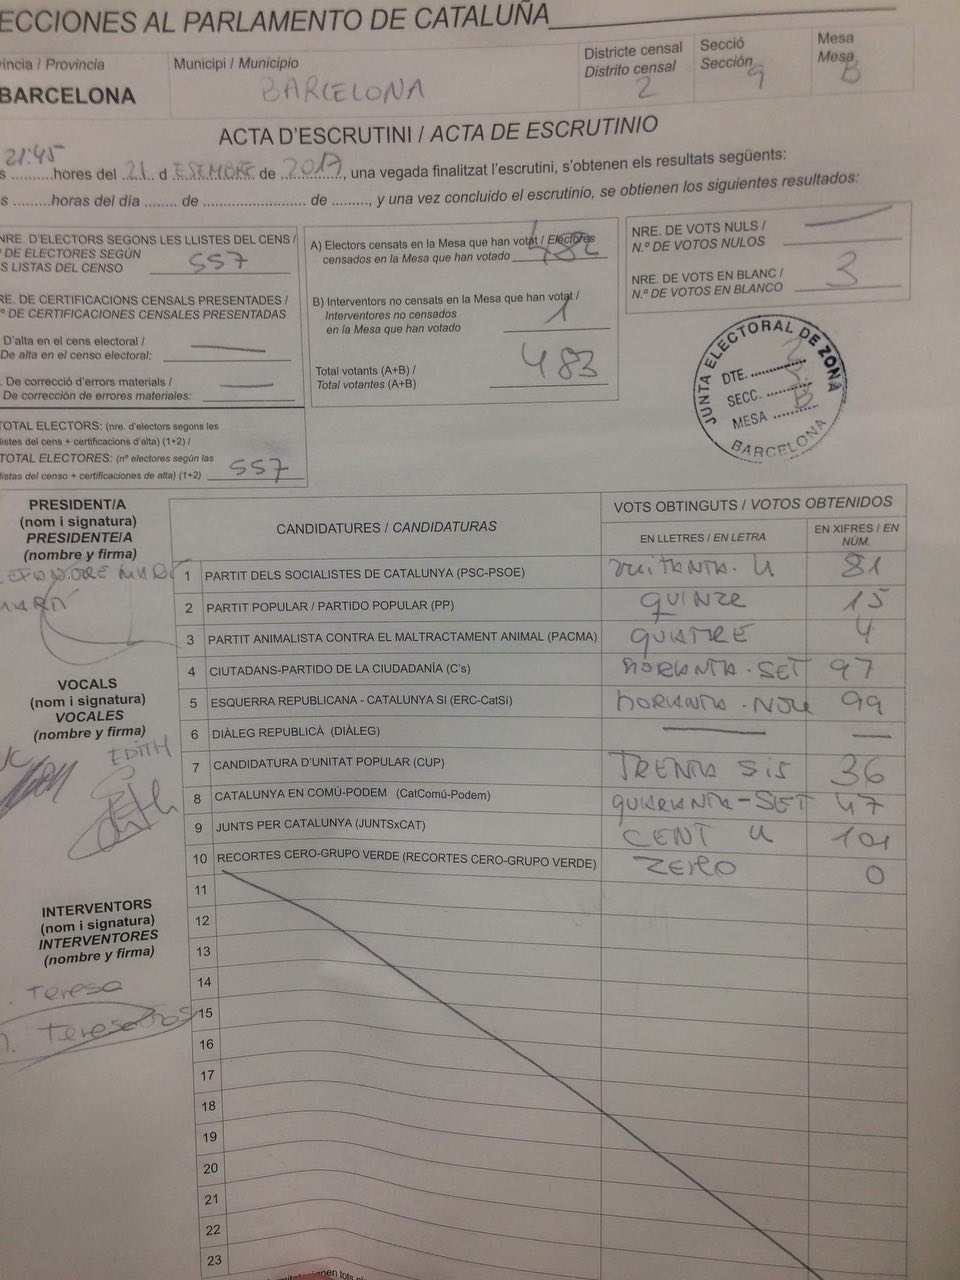 ECCIONES AL PARLAMENTO DE CATALUÑA
íncia / Provincia
BARCELONA
Municipi / Municipio
BARCELONA
Districte censal
Distrito censal
2
Secció
Sección
9
Mesa
Mesa
B
ACTA D'ESCRUTINI / ACTA DE ESCRUTINIO
21:45
s .........hores del 21 d ESEMBRE de 2017, una vegada finalitzat l'escrutini, s'obtenen els resultats següents:
s .........horas del día ...... de ........................ de ........., y una vez concluido el escrutinio, se obtienen los siguientes resultados:
NRE. D'ELECTORS SEGONS LES LLISTES DEL CENS /
º DE ELECTORES SEGÚN
S LISTAS DEL CENSO 557
RE. DE CERTIFICACIONS CENSALS PRESENTADES /
º DE CERTIFICACIONES CENSALES PRESENTADAS
D'alta en el cens electoral /
De alta en el censo electoral: —
. De correcció d'errors materials /
De corrección de errores materiales: —
TOTAL ELECTORS: (nre. d'electors segons les
llistes del cens + certificacions d'alta) (1+2) /
TOTAL ELECTORES: (nº electores según las
listas del censo + certificaciones de alta) (1+2) 557
A) Electors censats en la Mesa que han votat / Electores
censados en la Mesa que han votado 482
B) Interventors no censats en la Mesa que han votat /
Interventores no censados
en la Mesa que han votado 1
Total votants (A+B) /
Total votantes (A+B) 483
NRE. DE VOTS NULS /
N.º DE VOTOS NULOS —
NRE. DE VOTS EN BLANC /
N.º DE VOTOS EN BLANCO 3
JUNTA ELECTORAL DE ZONA
DTE. 2
SECC. 9
MESA B
BARCELONA
PRESIDENT/A
(nom i signatura)
PRESIDENTE/A
(nombre y firma)
VOCALS
(nom i signatura)
VOCALES
(nombre y firma)
EDITH
INTERVENTORS
(nom i signatura)
INTERVENTORES
(nombre y firma)
Teresa
Teresa
CANDIDATURES / CANDIDATURAS
VOTS OBTINGUTS / VOTOS OBTENIDOS
EN LLETRES / EN LETRA
EN XIFRES / EN
NÚM.
1 PARTIT DELS SOCIALISTES DE CATALUNYA (PSC-PSOE) VUITANTA-U 81
2 PARTIT POPULAR / PARTIDO POPULAR (PP) QUINZE 15
3 PARTIT ANIMALISTA CONTRA EL MALTRACTAMENT ANIMAL (PACMA) QUATRE 4
4 CIUTADANS-PARTIDO DE LA CIUDADANÍA (C's) NORANTA-SET 97
5 ESQUERRA REPUBLICANA - CATALUNYA SI (ERC-CatSí) NORANTA-NOU 99
6 DIÀLEG REPUBLICÀ (DIÀLEG) — —
7 CANDIDATURA D'UNITAT POPULAR (CUP) TRENTA SIS 36
8 CATALUNYA EN COMÚ-PODEM (CatComú-Podem) QUARANTA-SET 47
9 JUNTS PER CATALUNYA (JUNTSxCAT) CENT U 101
10 RECORTES CERO-GRUPO VERDE (RECORTES CERO-GRUPO VERDE) ZERO 0
11
12
13
14
15
16
17
18
19
20
21
22
23